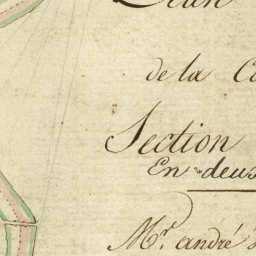 de la
Section
En deus
Mr. andré